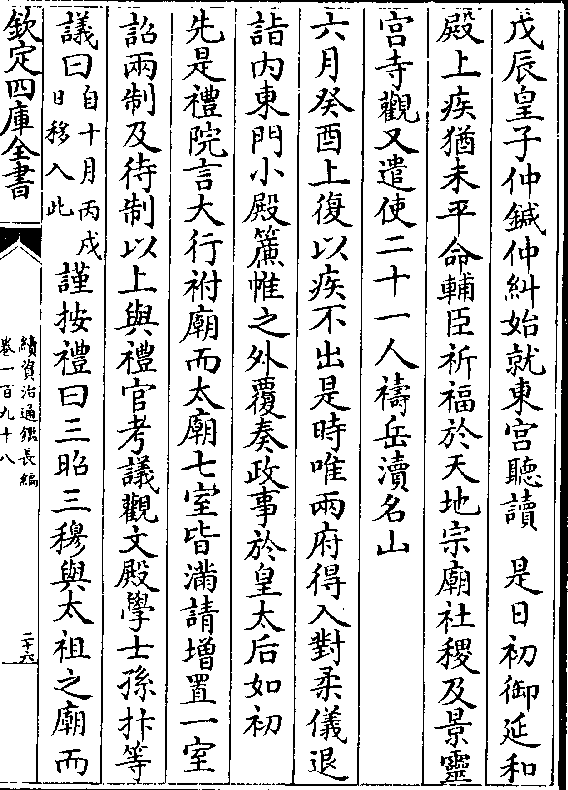 戊辰皇子仲鍼仲糾始就東宮聽讀　是日初御延和
殿上疾猶未平命輔臣祈福於天地宗廟社稷及景靈
宮寺觀又遣使二十一人禱岳瀆名山
六月癸酉上復以疾不出是時唯兩府得入對柔儀退
詣内東門小殿簾帷之外覆奏政事於皇太后如初
先是禮院言大行祔廟而太廟七室皆滿請增置一室
詔兩制及待制以上與禮官考議觀文殿學士孫抃等
議曰自十月丙戌日移入此謹按禮曰三昭三穆與太祖之廟而
欽定四庫全書
續資治通鑑長編
卷一百九十八
二十六